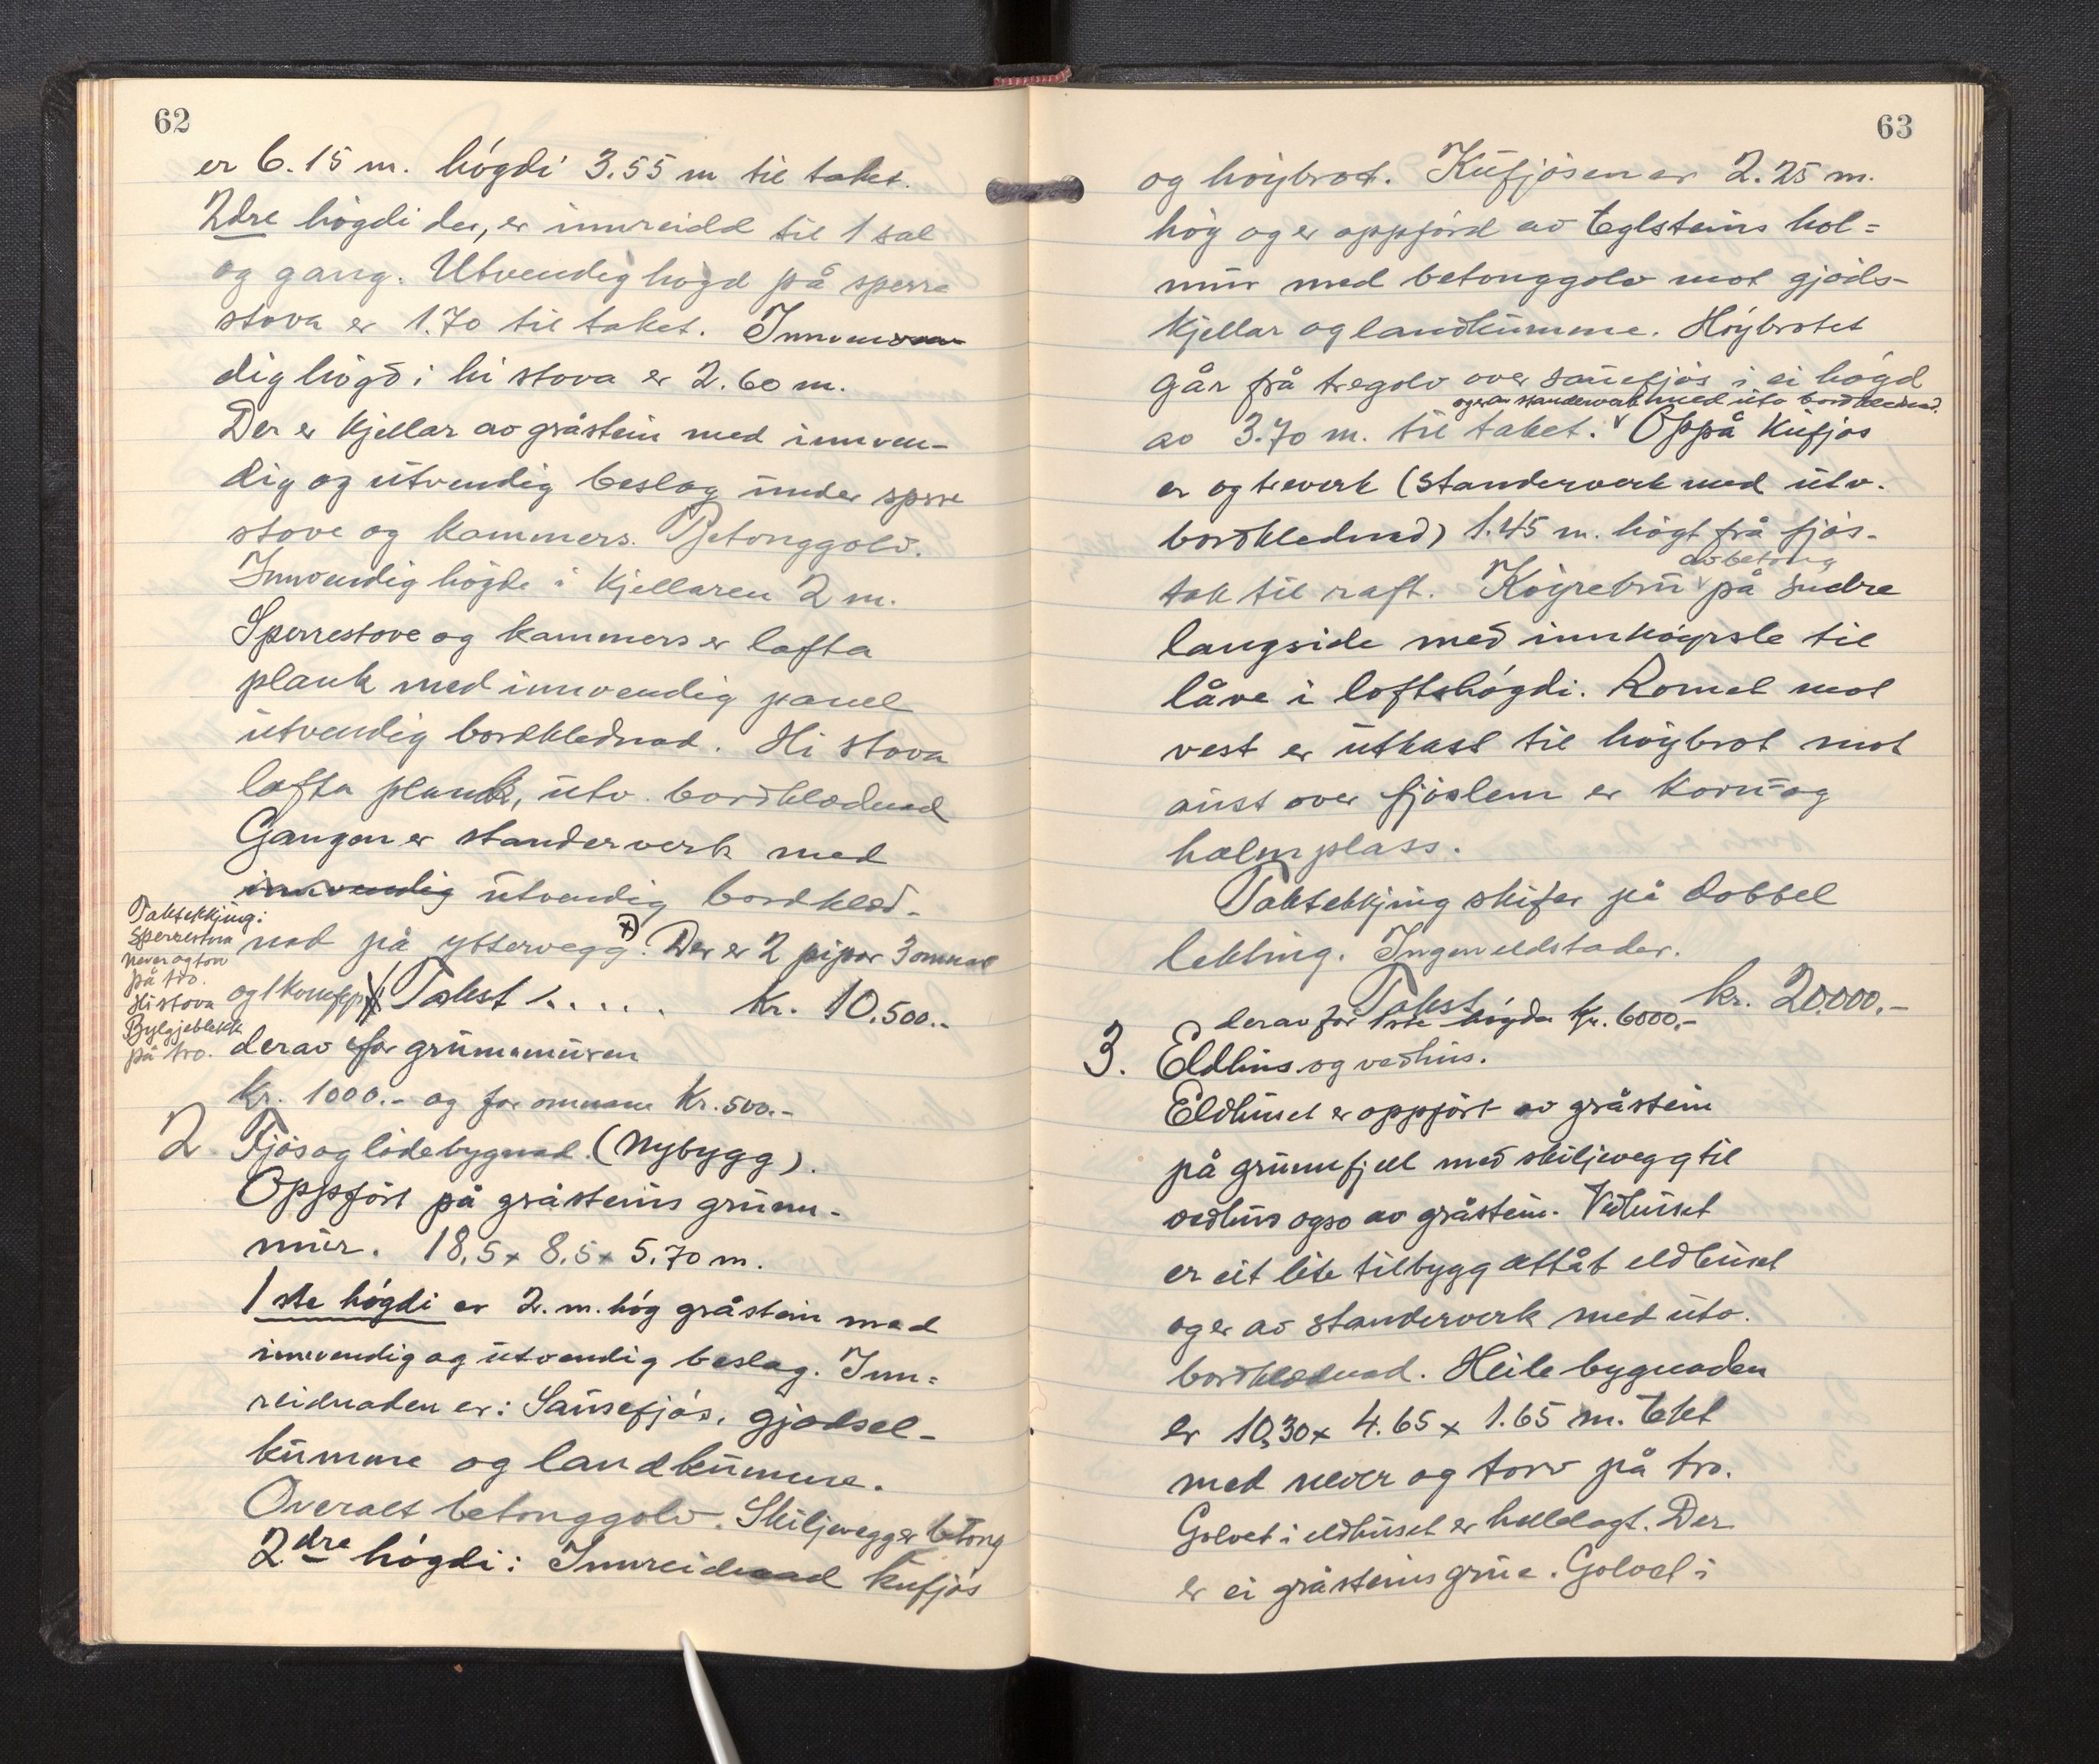 62
er 6.15 m. högdi 3.55 m til taket.
2dre högdi der, er innreidd til 1 sal
og gang. Utvendig högd på sperre
stova er 1.70 til taket. Innven
dig högd i hi stova er 2.60 m.
Der er kjellar av gråstein med innven-
dig og utvendig beslag under sperre
stove og kammers. Betonggolv.
Innvendig högde i kjellaren 2 m.
Sperrestove og kammers er lafta
plank med innvendig panel
utvendig bordklednad. Hi stova
lafta plank, utv. bordklædnad
Gangen er standerverk med
innvendig utvendig bordklæd-
nad på yttervegg. Der er 2 pipor 3 omnar
og 1 komfyr Takst 1. . . . . kr. 10.500.-
Taktekkjing:
Sperrestova
never og torv
på tro.
Hi stova
Bylgjeblekk
på tro.
derav for grunnmuren
kr. 1000.- og for omnane kr. 500.-
2. Fjøs og lödebygnad. (Nybygg).
Oppfört på gråsteins grunn-
mur. 18,5 x 8,5 x 5.70 m.
1ste högdi er 2. m. hög gråstein med
innvendig og utvendig beslag. Inn=
reidnaden er: Sauefjös, gjødsel-
kumme og landkumme.
Overalt betonggolv. Skiljevegger betong
2dre högdi: Innreidnad kufjös
63
og höybrot. Kufjösen er 2.25 m.
höy og er oppförd av teglsteins hol=
mur med betonggolv mot gjöds-
kjellar og landkumme. Höybrotet
går frå tregolv over sauefjös i ei högd
og er av standerverk med utv bordklednad.
av 3.70 m. til taket. Oppå kufjös
er og treverk (standerverk med utv.
bordklednad) 1.45 m. högt frå fjös-
av betong
tak til raft. Köyrebru på sudre
langside med innköyrsle til
låve i loftshögdi. Romet mot
vest er utkast til höybrot mot
aust over fjöslem er korn- og
halmplass.
Taktekkjing skifer på dobbel
lekting. Ingen eldstader.
Takst kr. 20.000.-
derav for 1ste högda kr. 6000,-
3. Eldhus og vedhus.
Eldhuset er oppfört av gråstein
på grunnfjell med skiljevegg til
vedhus ogso av gråstein. Vedhuset
er eit lite tilbygg attåt eldhuset
og er av standerverk med utv.
bordklædnad. Heile bygnaden
er 10,30 x 4.65 x 1.65 m. Tekt
med never og torv på tro.
Golvet i eldhuset er hellelagt. Der
er ei gråsteins grue. Golvet i